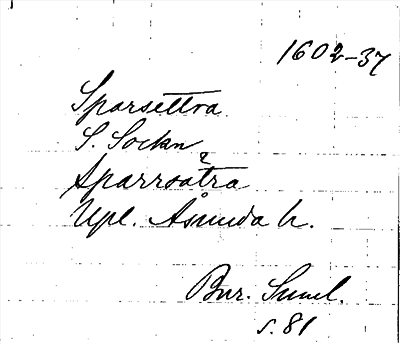 1602-37
Sparsettra
S. Sockn
Sparrsätra
Upl. Åsunda h.
Bur. Suml.
s. 81